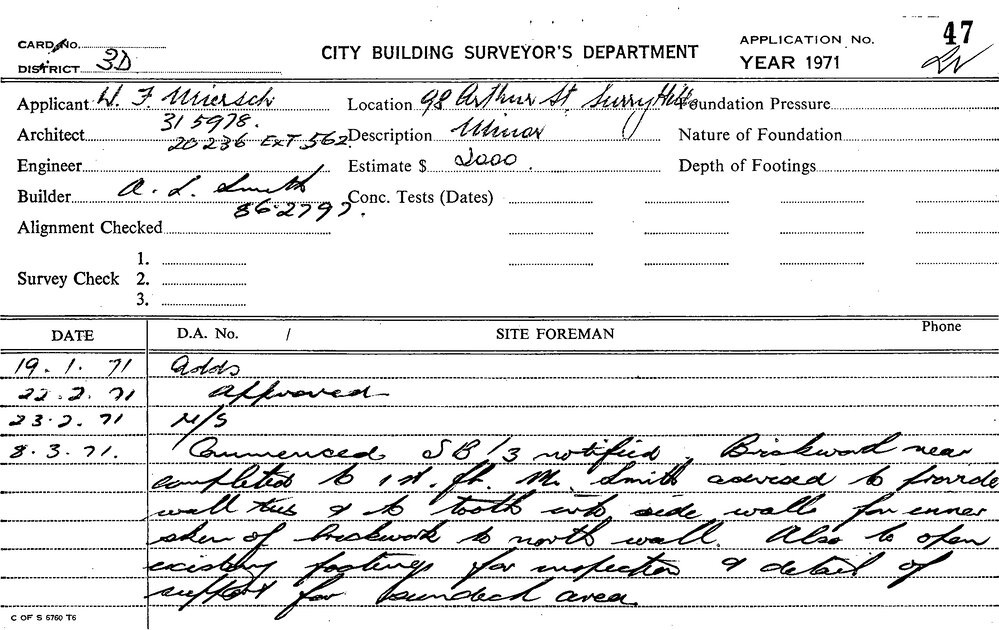 CARD No.
DISTRICT 3D
CITY BUILDING SURVEYOR'S DEPARTMENT
APPLICATION No. 47
YEAR 1971
Applicant W. F. Miersch
Location 98 Arthur St. Surry Hills
Foundation Pressure
31 5978.
Architect
20236 EXT 562
Description Minor
Nature of Foundation
Engineer
Estimate $ 2000.
Depth of Footings
Builder A. L. Smith
86.2797.
Conc. Tests (Dates)
Alignment Checked
Survey Check
1.
2.
3.
DATE
D.A. No. /
SITE FOREMAN
Phone
19.1.71 Adds
22.2.71 Approved
23.2.71 N/S
8.3.71. Commenced SB/3 notified. Brickwork near
completed to 1st. flr. Mr. Smith advised to provide
wall ties & to tooth into side walls for inner
skin of brickwork to north wall. Also to open
existing footings for inspection & detail of
support for sundeck area
C OF S 6760 T6